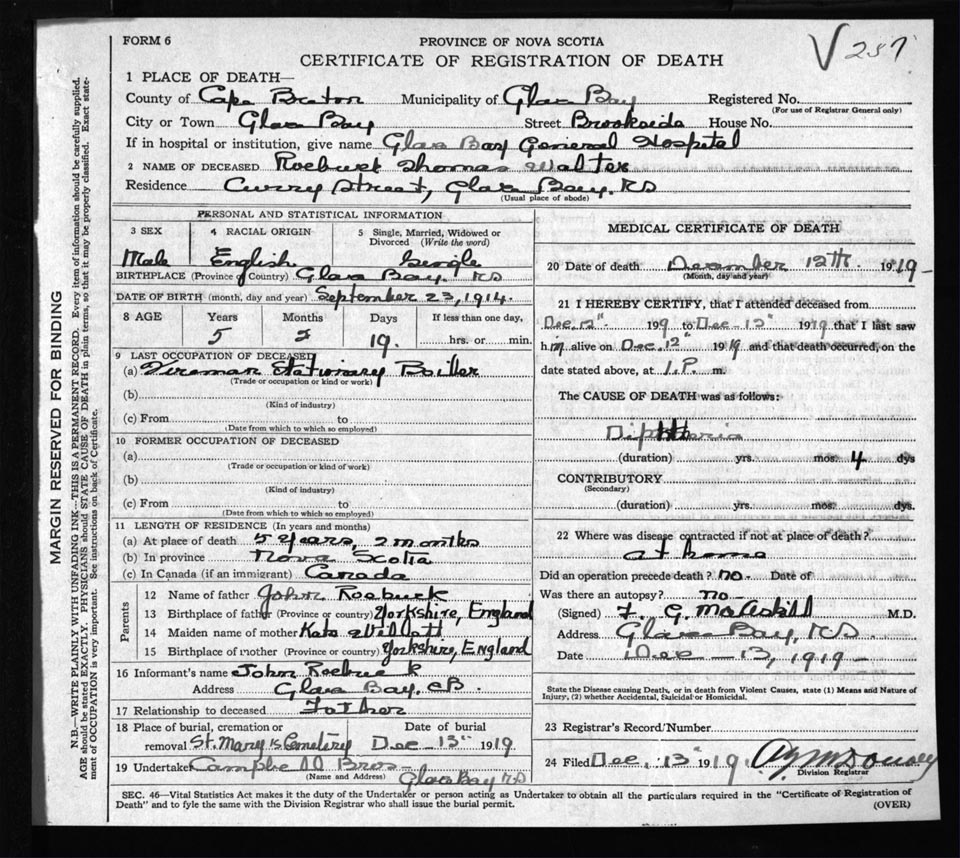 FORM 6
PROVINCE OF NOVA SCOTIA
CERTIFICATE OF REGISTRATION OF DEATH
V 257
1 PLACE OF DEATH—
County of Cape Breton Municipality of Glace Bay Registered No.
(For use of Registrar General only)
City or Town Glace Bay Street Brookside House No.
If in hospital or institution, give name Glace Bay General Hospital
2 NAME OF DECEASED Roebuck Thomas Walter
Residence Curry Street, Glace Bay. NS
(Usual place of abode)
MARGIN RESERVED FOR BINDING
N.B.—WRITE PLAINLY WITH UNFADING INK—THIS IS A PERMANENT RECORD. Every item of information should be carefully supplied.
AGE should be stated EXACTLY. PHYSICIANS should STATE CAUSE OF DEATH in plain terms, so that it may be properly classified. Exact state-
ment of OCCUPATION is very important. See instructions on back of Certificate.
PERSONAL AND STATISTICAL INFORMATION
3 SEX 4 RACIAL ORIGIN 5 Single, Married, Widowed or
Divorced (Write the word)
Male English Single
BIRTHPLACE (Province or Country) Glace Bay. NS
DATE OF BIRTH (month, day and year) September 23, 1914.
8 AGE Years Months Days If less than one day,
5 2 19. hrs. or min.
9 LAST OCCUPATION OF DECEASED
(a) Fireman Stationary Boiler
(Trade or occupation or kind or work)
(b)
(Kind of industry)
(c) From to
(Date from which to which so employed)
10 FORMER OCCUPATION OF DECEASED
(a)
(Trade or occupation or kind of work)
(b)
(Kind of industry)
(c) From to
(Date from which to which so employed)
11 LENGTH OF RESIDENCE (In years and months)
(a) At place of death 5 years, 2 months
(b) In province Nova Scotia
(c) In Canada (if an immigrant) Canada
Parents
12 Name of father John Roebuck
13 Birthplace of father (Province or country) Yorkshire, England
14 Maiden name of mother Kate Willott
15 Birthplace of mother (Province or country) Yorkshire, England
16 Informant's name John Roebuck
Address Glace Bay, CB.
17 Relationship to deceased Father
18 Place of burial, cremation or Date of burial
removal St. Mary's Cemetery Dec 13" 1919
19 Undertaker Campbell Bros
(Name and Address) Glace Bay NS
MEDICAL CERTIFICATE OF DEATH
20 Date of death December 12th 1919-
(Month, day and year)
21 I HEREBY CERTIFY, that I attended deceased from
Dec. 12" 1919 to Dec—12" 1919 that I last saw
him alive on Dec. 12" 1919 and that death occurred, on the
date stated above, at 1.P. m.
The CAUSE OF DEATH was as follows:
Diphtheria
(duration) yrs. mos. 4 dys
CONTRIBUTORY
(Secondary)
(duration) yrs. mos. dys.
22 Where was disease contracted if not at place of death?
at home
Did an operation precede death? no- Date of
Was there an autopsy? no-
(Signed) F. G. McAskill M.D.
Address Glace Bay, NS
Date Dec—13, 1919-
State the Disease causing Death, or in death from Violent Causes, state (1) Means and Nature of
Injury, (2) whether Accidental, Suicidal or Homicidal.
23 Registrar's Record Number
24 Filed Dec, 13" 1919
Division Registrar
SEC. 46—Vital Statistics Act makes it the duty of the Undertaker or person acting as Undertaker to obtain all the particulars required in the "Certificate of Registration of
Death" and to fyle the same with the Division Registrar who shall issue the burial permit.
(OVER)